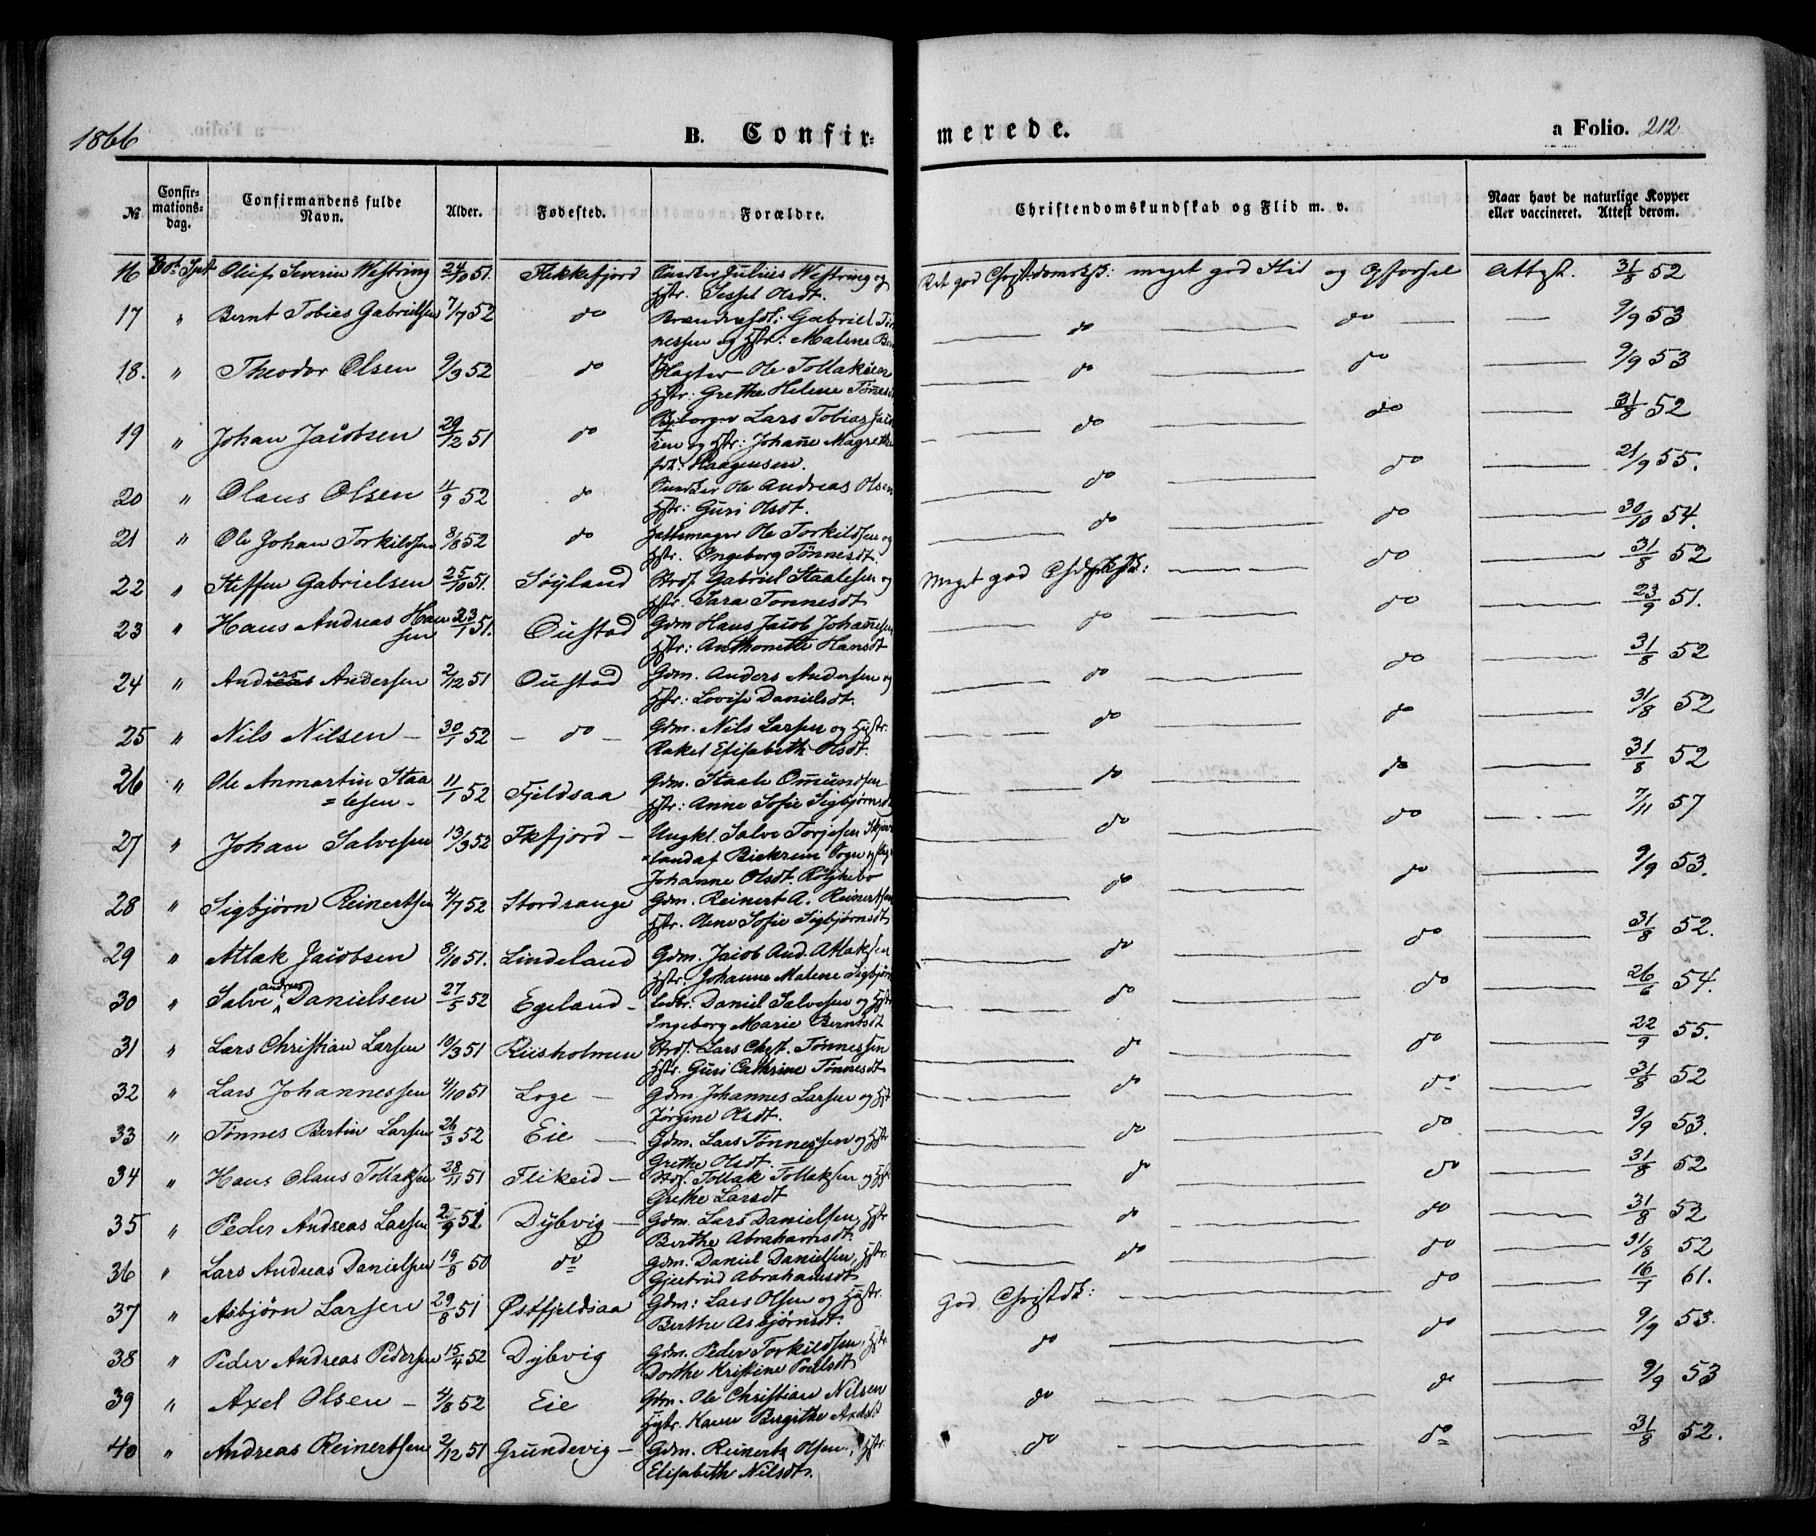 1866 B. Confir- merede. a Folio. 212.
№ Confir-mations-dag. Confirmandens fulde Navn. Alder. Fødested. Forældre. Christendomskundskab og Flid m. v. Naar havt de naturlige Kopper eller vaccineret. Attest derom.
16 Oluf Severin Westring 24/10 51. Flekkefjord Julius Westring og Hstr. Sissel Olsdt. meget god Flid og Opførsel Attest. 31/8 52
17 " Bernt Tobias Gabrielsen 7/7 52 do Gabriel og Hstr: Malene do do 9/9 53
18. " Theodor Olsen 9/3 52 do Ole Tollaksen Hstr: Grethe Helene do do 9/9 53
19 " Johan Jacobsen 29/12 51 do Lars Tobias og Hstr: Johanne Magrethe Haagensen. do do 31/8 52
20 " Olaus Olsen 4/9 52 do Ole Andreas Olsen Hstr: Guri Olsdt. do do 21/9 55.
21 " Ole Johan Torkildsen 8/8 52 do Ole Torkildsen og Hstr. Ingeborg Tønnesdt. do do 30/10 54.
22 " Steffen Gabrielsen 25/10 51. Søyland Strds. Gabriel Staalesen og Hstr. Sara Tønnesdt Meget god do 31/8 52
23 " Hans Andreas Hansen 23/1 51. Oustad Gdm Hans Jacob Johannesen Hstr: Anthonette Hansdt do do 23/9 51.
24 " Andersen 2/12 51 Oustad Gdm. Anders Andersen og Hstr: Lovise Danielsdt. do do 31/8 52
25 " Nils Nilsen - 30/1 52 - do - Gdm. Nils Larsen og Hstr. Rakel Elisabeth Olsdt. do do 31/8 52
26 " Ole Anmartin Staalesen - 11/1 52 Fjeldsaa Gdm. Staale Omundsen Hstr: Anne Sofie Sigbjørnsdt do do 31/8 52
27 " Johan Salvesen 13/3 52 Fkfjord - Ungkl. Salve Torjesen af Biekrem Sogn og Johanne Olsdt. do do 7/11 57
28 " Sigbjørn Reinertsen 4/7 52 Stordrange Gdm. Reinert A. Reinertsen Hstr. Olene Sofie Sigbjørnsdt do do 9/9 53.
29 " Atlak Jacobsen 8/10 51. Lindeland Gdm. Jacob And. Atlaksen Hstr. Johanne Malene do do 31/8 52.
30 " Salve Andreas Danielsen 27/5 52 Egeland - Daniel Salvesen og Hstr Ingeborg Marie Berntsdt do do 26/6 54.
31 " Lars Christian Larsen 10/3 51 Riisholmen Strds. Lars Chrst. Tønnessen Hstr. Guri Cathrine Tønnesdt do do 22/9 55.
32 " Lars Johannessen 4/10 51 Loge - Gdm Johannes Larsen og Hst Jørgine Olsdt. do do 31/8 52
33 " Tønnes Bertin Larsen 26/3 52 Eie - Gdm. Lars Tønnessen og Hst Grethe Olsdt. do do 9/9 53.
34 " Hans Olaus Tollaksen 28/11 51 Flikeid - Strds. Tollak Tollaksen og Hst Grethe Larsdt do do 31/8 52
35 " Peder Andreas Larsen Dybvig - Gdm. Lars Danielsen, Hstr Berthe Abrahamsdt. do do 31/8 52
36 " Lars Andreas Danielsen 19/8 50 do Gdm. Daniel Danielsen, Hstr. Gjertrud Abrahamsdt do do 31/8 52
37 " Asbjørn Larsen 29/8 51 Østfjeldsaa Gdm: Lars Olsen og Hustr. Berthe Asbjørnsdt. God do 16/7 61.
38 " Peder Andreas Pedersen 15/4 52 Dybvig Gdm. Peder Torkildsen, Hstr Dorthe Kristine Poulsdt do do 9/9 53.
39 " Axel Olsen - 4/8 52 Eie Gdm. Ole Christian Nilsen Hustr. Karen Birgithe Axelsdt do do 9/9 53
40 " Andreas Reinertsen 2/12 51 Grundevig - Gdm. Reinert Olsen, Hstr. Elisabeth Nilsdt. do do 31/8 52.